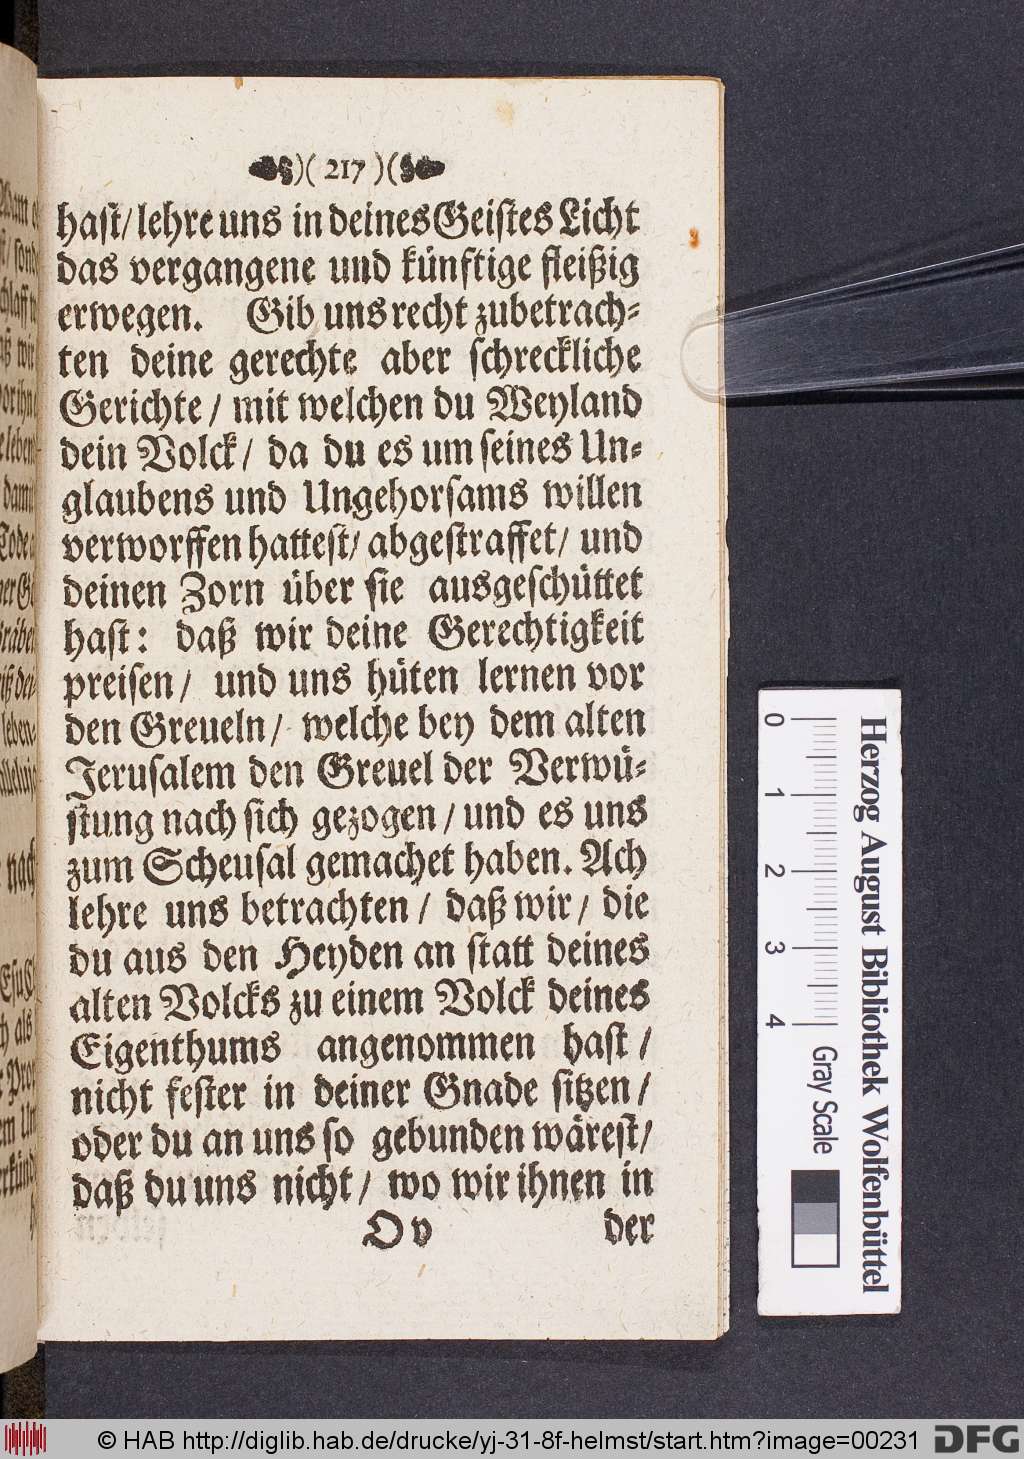 )( 217 )(
hast/ lehre uns in deines Geistes Licht
das vergangene und künftige fleißig
erwegen. Gib uns recht zubetrach⸗
ten deine gerechte aber schreckliche
Gerichte / mit welchen du Weyland
dein Volck / da du es um seines Un⸗
glaubens und Ungehorsams willen
verworffen hattest/ abgestraffet/ und
deinen Zorn über sie ausgeschüttet
hast: daß wir deine Gerechtigkeit
preisen / und uns hüten lernen vor
den Greueln / welche bey dem alten
Jerusalem den Greuel der Verwü⸗
stung nach sich gezogen / und es uns
zum Scheusal gemachet haben. Ach
lehre uns betrachten / daß wir / die
du aus den Heyden an statt deines
alten Volcks zu einem Volck deines
Eigenthums angenommen hast /
nicht fester in deiner Gnade sitzen /
oder du an uns so gebunden wärest/
daß du uns nicht / wo wir ihnen in
O v der
0 1 2 3 4
Gray Scale
Herzog August Bibliothek Wolfenbüttel
© HAB http://diglib.hab.de/drucke/yj-31-8f-helmst/start.htm?image=00231
DFG